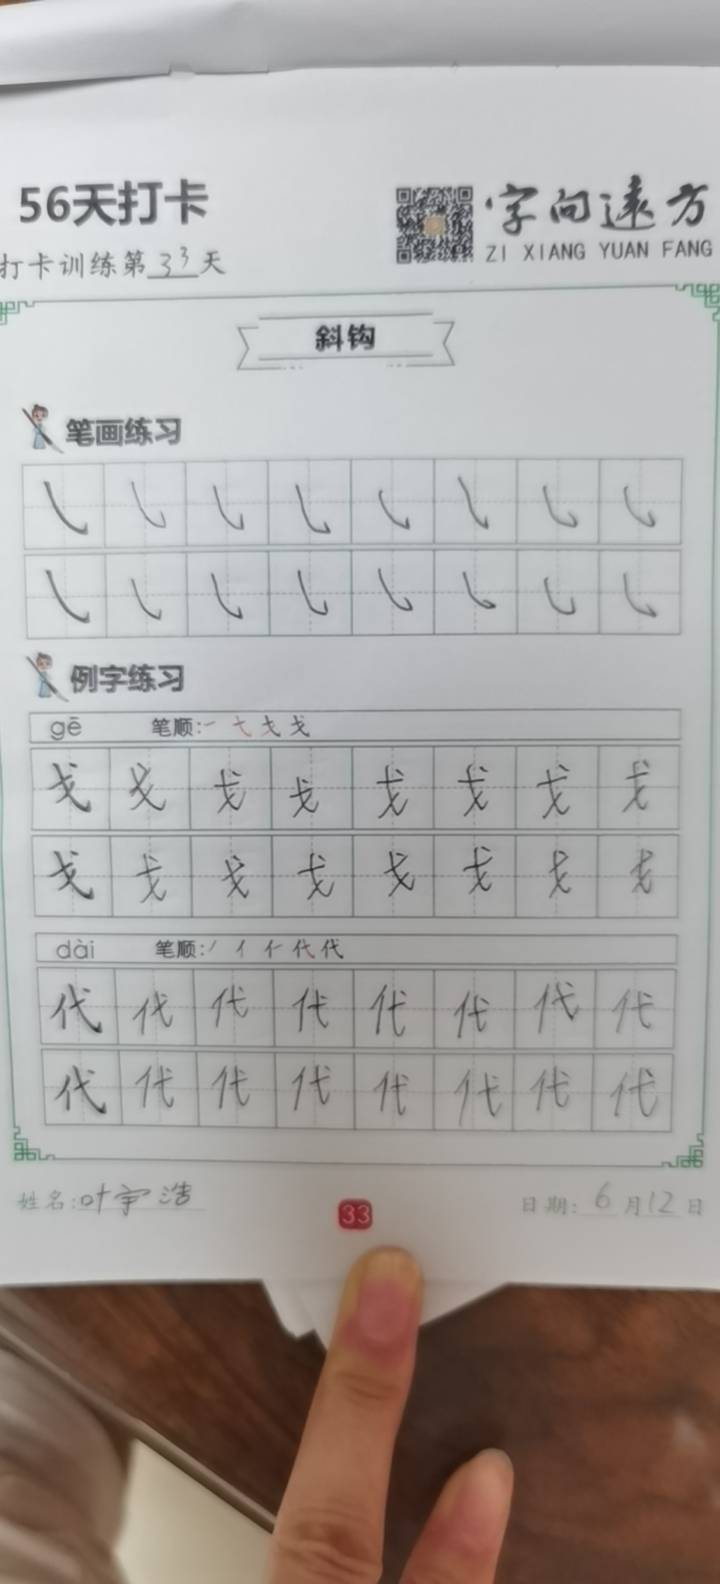 56天打卡
字向遠方
ZI XIANG YUAN FANG
打卡训练第33天
斜钩
笔画练习
㇂ ㇂ ㇂ ㇂ ㇂ ㇂ ㇂ ㇂
㇂ ㇂ ㇂ ㇂ ㇂ ㇂ ㇂ ㇂
例字练习
gē 笔顺:一 弋 戈 戈
戈 戈 戈 戈 戈 戈 戈 戈
戈 戈 戈 戈 戈 戈 戈 戈
dài 笔顺:丿 亻 仁 代 代
代 代 代 代 代 代 代 代
代 代 代 代 代 代 代 代
姓名:叶宇浩 33 日期:6月12日